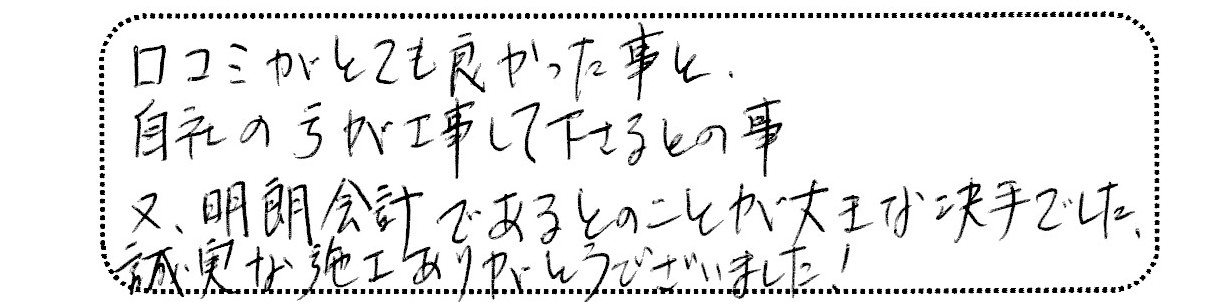 口コミがとても良かった事と、
自社の方が工事して下さるとの事
又、明朗会計であるとのことが大きな決手でした、
誠実な施工ありがとうございました!